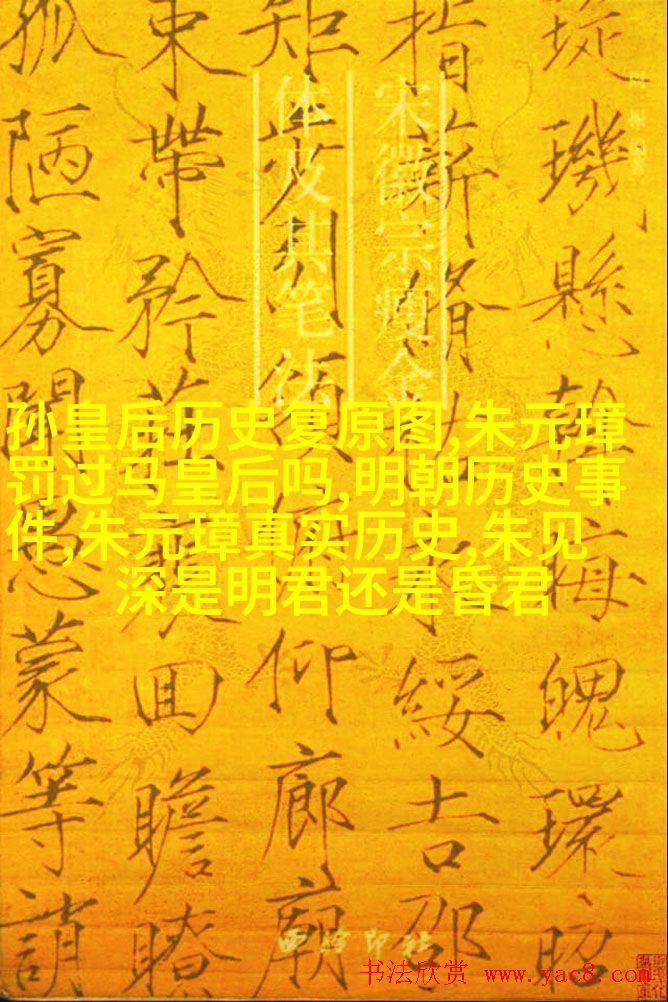 璇璣懸斡晦魄環照
指薪修祜永綏吉劭
矩步引領俯仰廊廟
束帶矜莊徘徊瞻眺
孤陋寡聞愚蒙等誚
宋徽宗瘦金
体及其笔法
孙皇后历史复原图,朱元璋
罚过马皇后吗,明朝历史事
件,朱元璋真实历史,朱见
深是明君还是昏君
西泠印社
书法欣赏 www.yac8.com